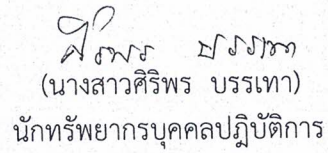 ศิริพร บรรเทา
(นางสาวศิริพร บรรเทา)
นักทรัพยากรบุคคลปฏิบัติการ